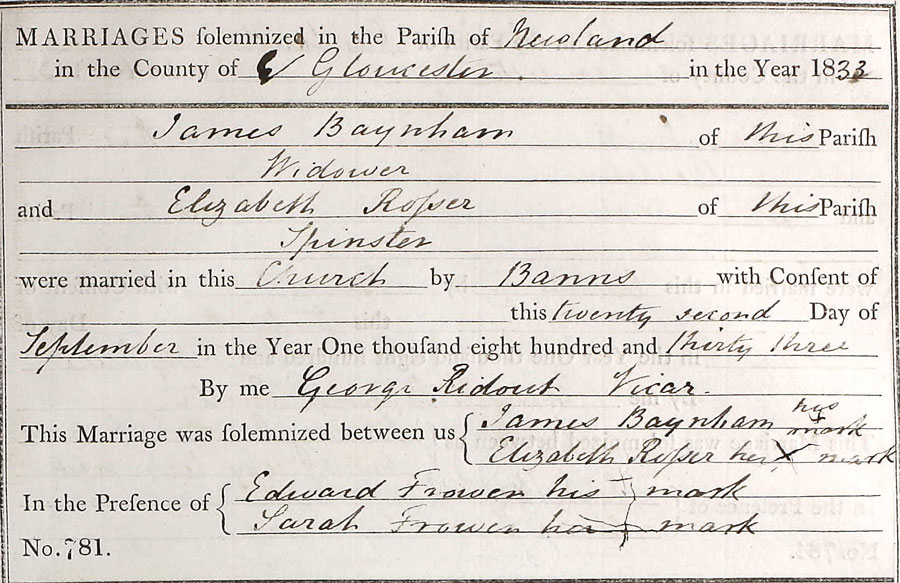 MARRIAGES ſolemnized in the Pariſh of Newland
in the County of Gloucester. in the Year 1833
James Baynham of this Pariſh
Widower
and Elizabeth Roſser of this Pariſh
Spinster
were married in this Church by Banns with Conſent of
this twenty second Day of
September in the Year One thouſand eight hundred and thirty three
By me George Ridout Vicar.
This Marriage was ſolemnized between us { James Baynham his + mark
Elizabeth Roſser her X mark
In the Preſence of { Edward Frowen his + mark
Sarah Frowen her + mark
No. 781.